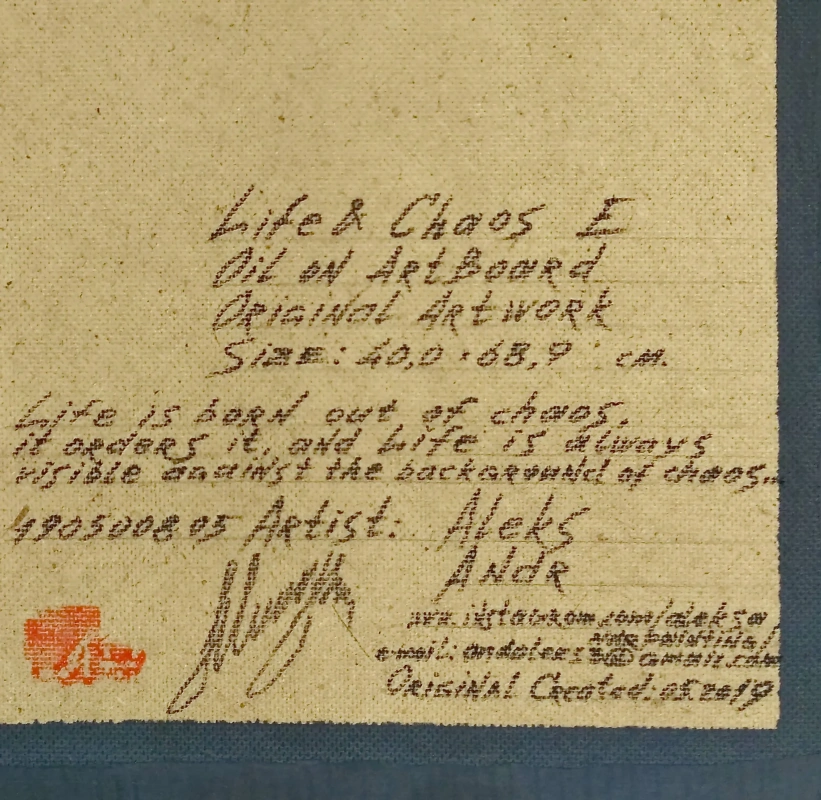 Life & Chaos E
Oil on ArtBoard
Original Artwork
Size: 40,0 × 68,9 cm.
Life is born out of chaos,
it orders it, and Life is always
visible against the background of chaos...
1905000805 Artist: Aleks
Andr
www.instagram.com/aleksandr
painting/
e-mail: @gmail.com
Original Created: 05.2019